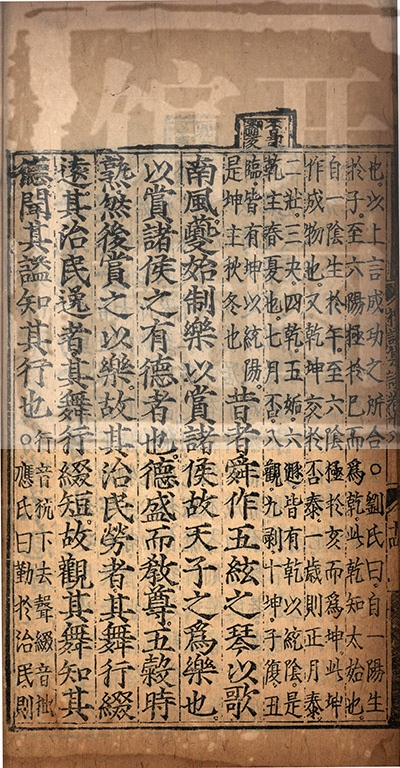 也。以上言成功之所合。劉氏曰。自一陽生
於子。至六陽極於巳而爲乾。此乾知太始也。
自一陰生於午。至六陰極於亥而爲坤。此坤
作成物也。又乾坤交於否泰。一歲則正月泰。
二壯。三夬。四乾。五姤。六遯。皆有乾以統陰。是
乾主春夏也。七月否。八觀。九剝。十坤。子復。丑
臨。皆有坤以統陽。
是坤主秋冬也
昔者舜作五絃之琴以歌
南風夔始制樂以賞諸侯故天子之爲樂也
以賞諸侯之有德者也。德盛而教尊。五穀時
熟。然後賞之以樂。故其治民勞者。其舞行綴
遠。其治民逸者。其舞行綴短。故觀其舞知其
德。聞其謚知其行也。
行音杭下去聲綴音拙
應氏曰勤於治民則